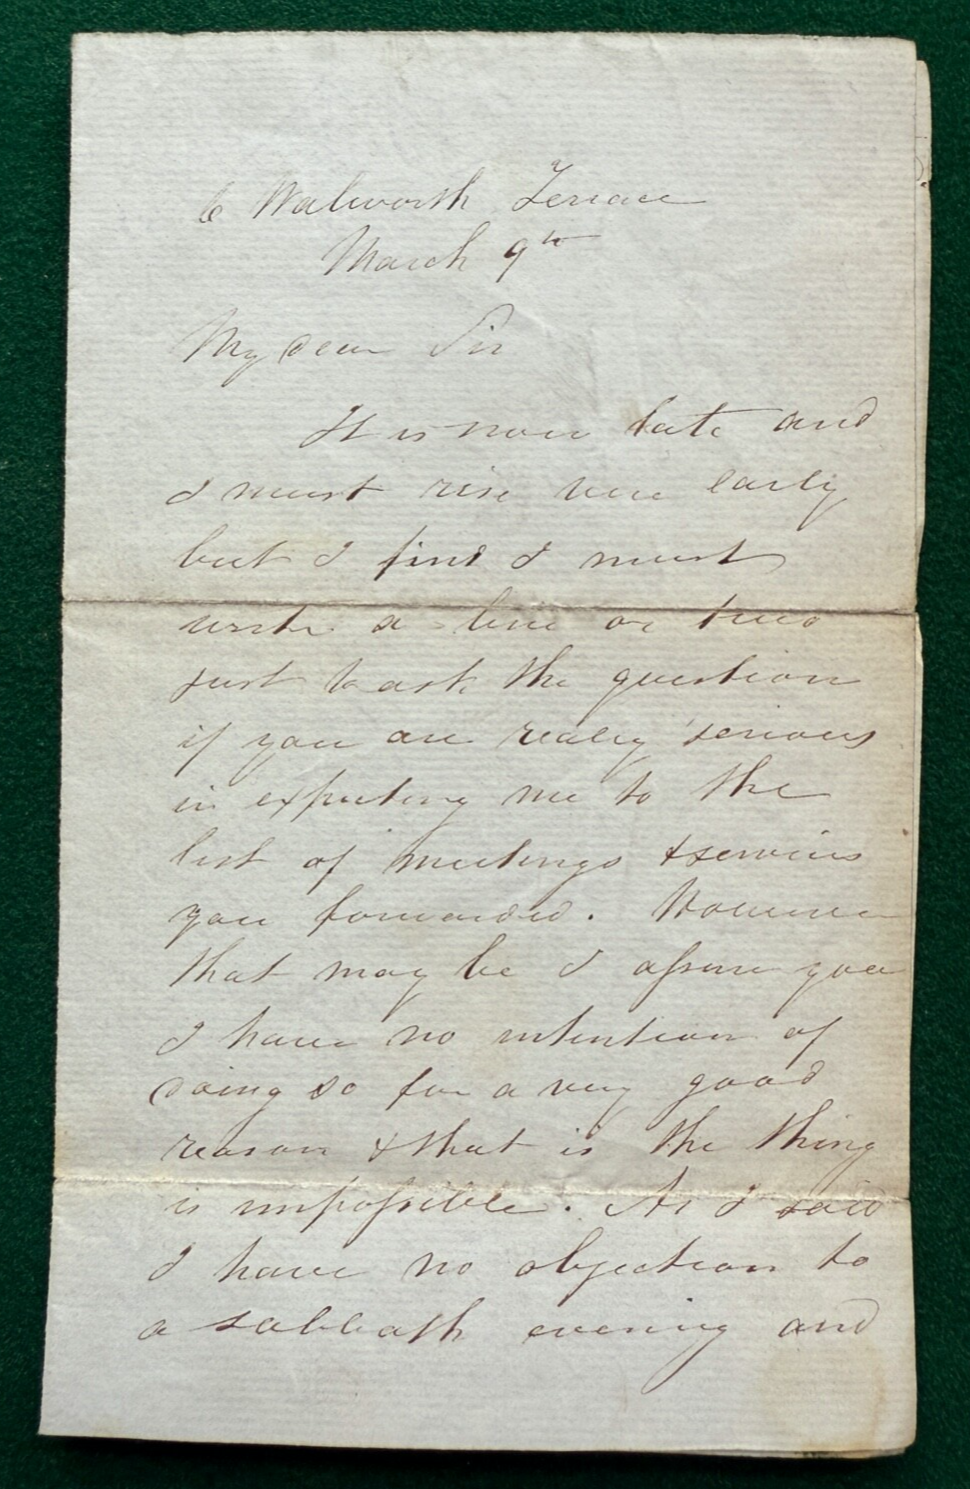 6 Walworth Terrace
March 9th
My dear Sir
It is now late and
I must rise very early
but I find I must
write a line or two
just to ask the question
if you are really serious
in expecting me to the
list of meetings & services
you forwarded. However
that may be I assure you
I have no intention of
doing so for a very good
reason & that is the thing
is impossible. As I said
I have no objection to
a sabbath evening and